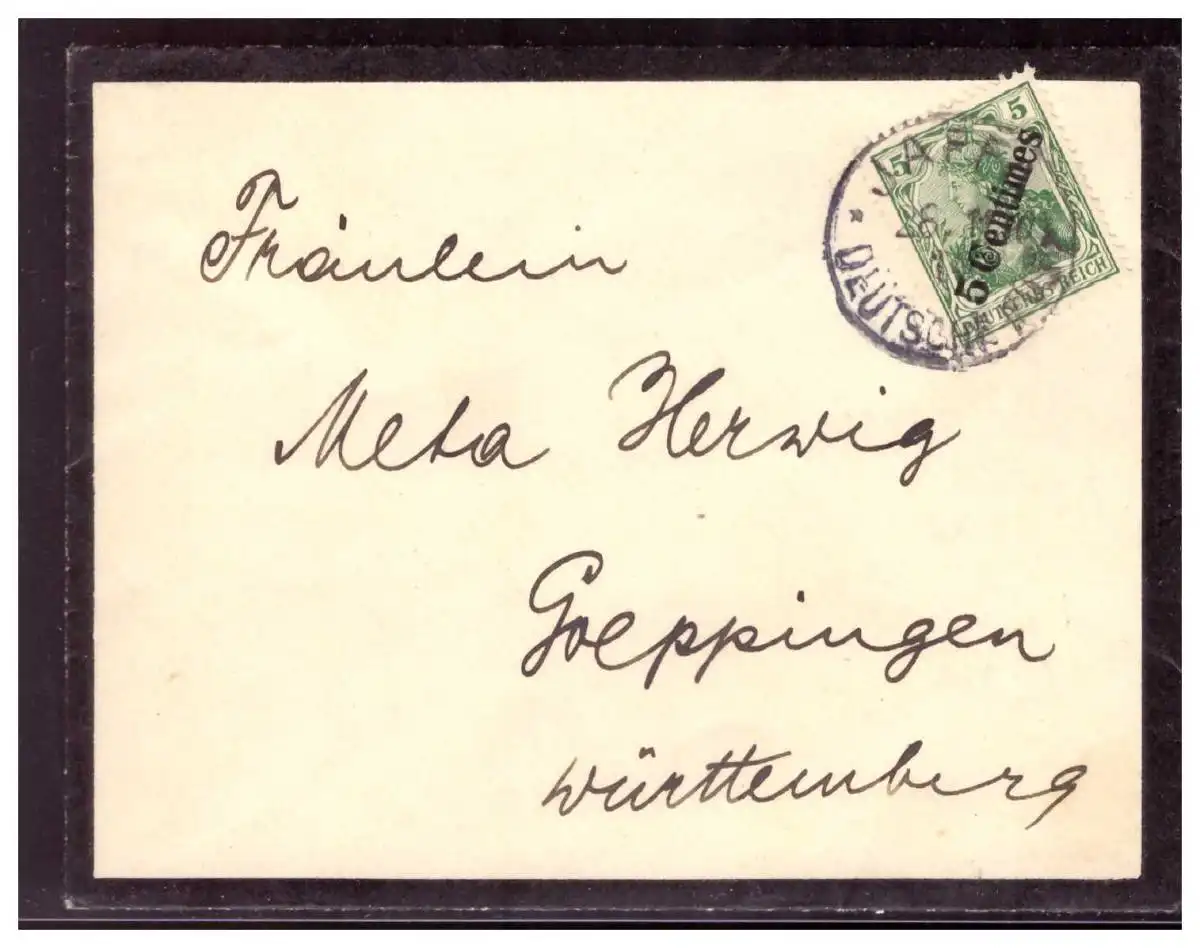 5 5
5 Centimes
DEUTSCHES REICH
JAFFA
DEUTSCHE
Fräulein
Meta Herwig
Goeppingen
Württemberg